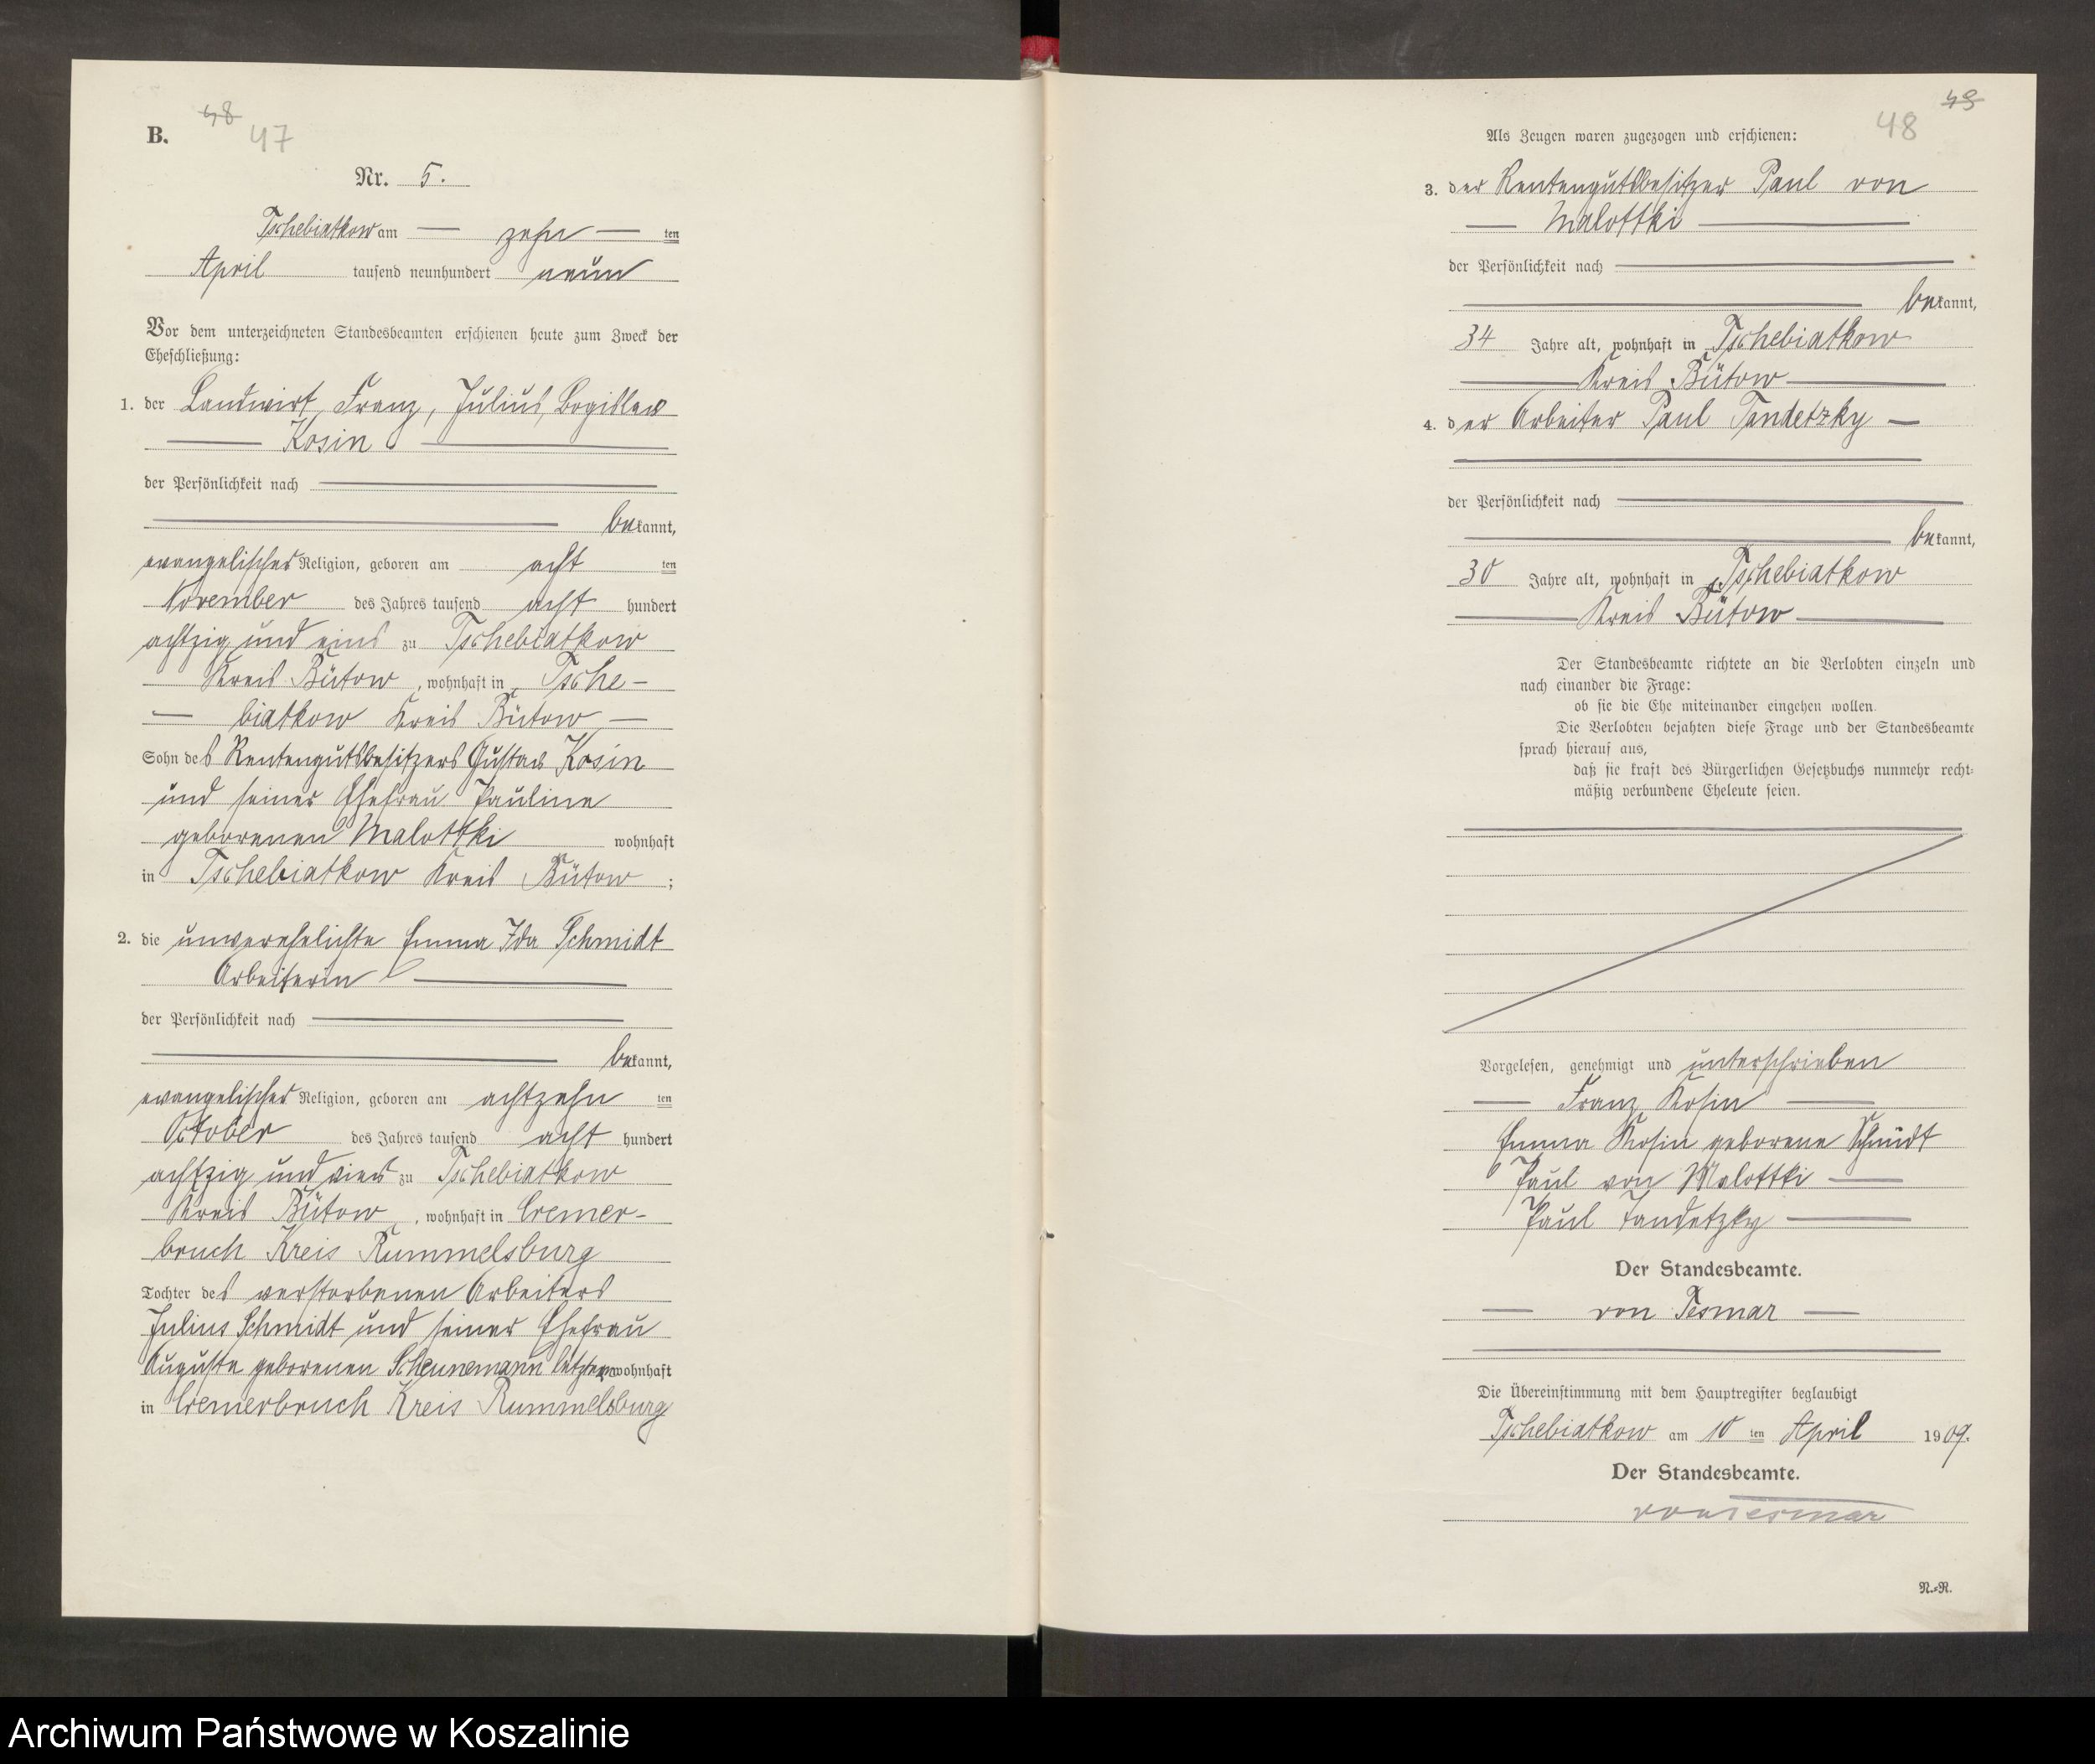 B.
48
47
Nr. 5.
Tschebiatkow am zehn ten
April tausend neunhundert neun
Vor dem unterzeichneten Standesbeamten erschienen heute zum Zweck der
Eheschließung:
1. der Landwirt, Franz, Julius, Bogislav
Kosin
der Persönlichkeit nach
bekannt,
evangelischer Religion, geboren am acht ten
November des Jahres tausend acht hundert
achtzig und eins zu Tschebiatkow
Kreis Bütow, wohnhaft in Tsche-
biatkow Kreis Bütow
Sohn des Rentengutsbesitzers Gustav Kosin
und seiner Ehefrau Pauline
geborenen Malottki wohnhaft
in Tschebiatkow Kreis Bütow;
2. die unverehelichte Emma Ida Schmidt
Arbeiterin
der Persönlichkeit nach
bekannt,
evangelischer Religion, geboren am achtzehn ten
October des Jahres tausend acht hundert
achtzig und vier zu Tschebiatkow
Kreis Bütow, wohnhaft in Cremer-
bruch Kreis Rummelsburg
Tochter des verstorbenen Arbeiters
Julius Schmidt und seiner Ehefrau
Auguste geborenen Scheunemann wohnhaft
in Cremerbruch Kreis Rummelsburg
49
48
Als Zeugen waren zugezogen und erschienen:
3. der Rentengutsbesitzer Paul von
Malottki
der Persönlichkeit nach
bekannt,
34 Jahre alt, wohnhaft in Tschebiatkow
Kreis Bütow
4. der Arbeiter Paul Tandetzky
der Persönlichkeit nach
bekannt,
30 Jahre alt, wohnhaft in Tschebiatkow
Kreis Bütow
Der Standesbeamte richtete an die Verlobten einzeln und
nach einander die Frage:
ob sie die Ehe miteinander eingehen wollen.
Die Verlobten bejahten diese Frage und der Standesbeamte
sprach hierauf aus,
daß sie kraft des Bürgerlichen Gesetzbuchs nunmehr recht-
mäßig verbundene Eheleute seien.
Vorgelesen, genehmigt und unterschrieben
Franz Kosin
Emma Kosin geborene Schmidt
Paul von Malottki
Paul Tandetzky
Der Standesbeamte.
von Tesmar
Die Übereinstimmung mit dem Hauptregister beglaubigt
Tschebiatkow am 10 ten April 1909.
Der Standesbeamte.
von Tesmar
N.-N.
Archiwum Państwowe w Koszalinie